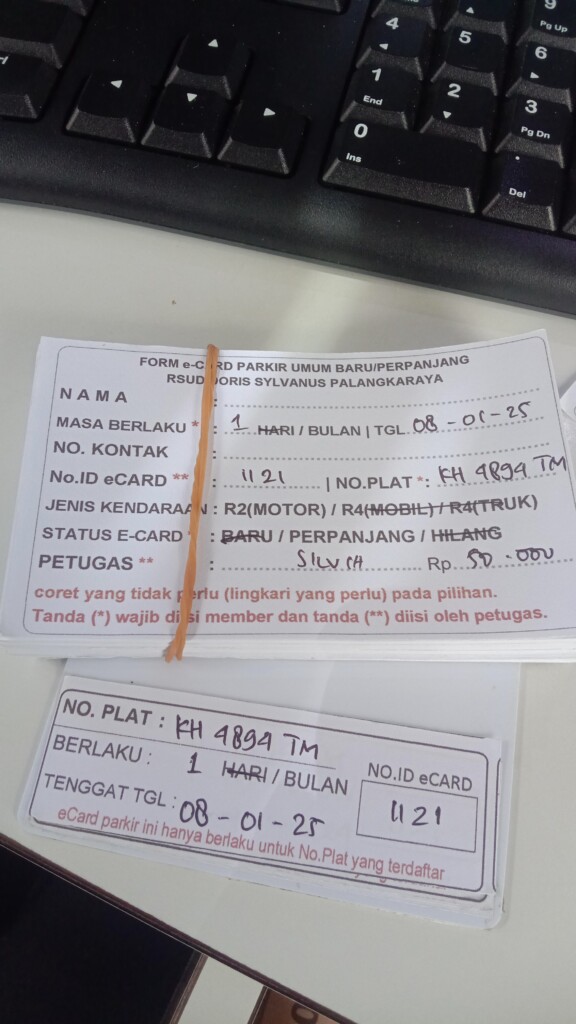 4
5
6
9
Pg Up
1
End
2
3
Pg Dn
0
Ins
Del
FORM e-CARD PARKIR UMUM BARU/PERPANJANG
RSUD DORIS SYLVANUS PALANGKARAYA
NAMA :
MASA BERLAKU * : 1 HARI / BULAN | TGL 08-01-25
NO. KONTAK :
No.ID eCARD ** : 1121 | NO.PLAT *: KH 4894 TM
JENIS KENDARAAN : R2(MOTOR) / R4(MOBIL) / R4(TRUK)
STATUS E-CARD * : BARU / PERPANJANG / HILANG
PETUGAS ** : SILVIA Rp. 50.000
coret yang tidak perlu (lingkari yang perlu) pada pilihan.
Tanda (*) wajib diisi member dan tanda (**) diisi oleh petugas.
NO. PLAT : KH 4894 TM
BERLAKU : 1 HARI / BULAN
NO.ID eCARD
1121
TENGGAT TGL : 08-01-25
eCard parkir ini hanya berlaku untuk No.Plat yang terdaftar